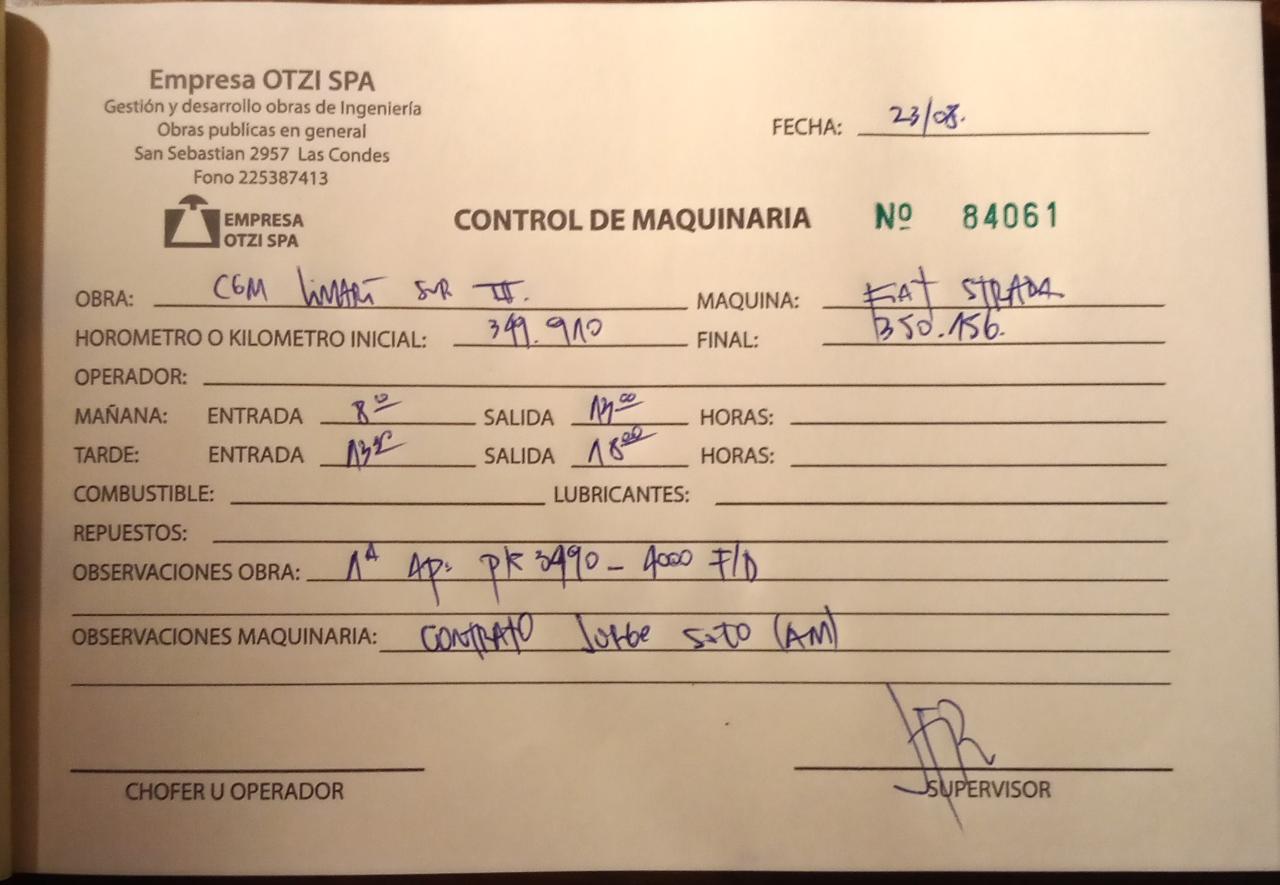 Empresa OTZI SPA
Gestión y desarrollo obras de Ingeniería
Obras publicas en general
San Sebastian 2957 Las Condes
Fono 225387413
FECHA: 23/08.
EMPRESA
OTZI SPA
CONTROL DE MAQUINARIA Nº 84061
OBRA: CGM LiMARÍ SUR II. MAQUINA: FIAT STRADA
HOROMETRO O KILOMETRO INICIAL: 349.910 FINAL: 350.156.
OPERADOR:
MAÑANA: ENTRADA 8⁰⁰ SALIDA 13⁰⁰ HORAS:
TARDE: ENTRADA SALIDA 18⁰⁰ HORAS:
COMBUSTIBLE: LUBRICANTES:
REPUESTOS:
OBSERVACIONES OBRA: 1ª AP. PK 3490 - 4000 F/D
OBSERVACIONES MAQUINARIA: CONTRATO JORGE SOTO (AM)
CHOFER U OPERADOR
SUPERVISOR